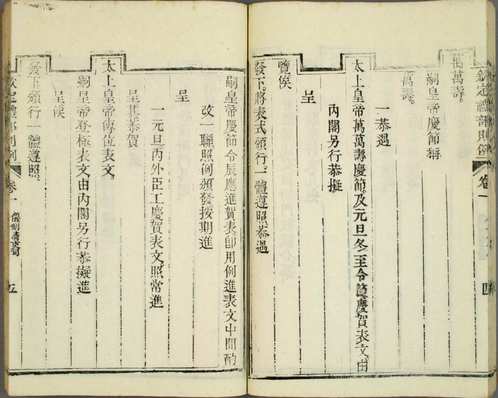 欽定禮部則例 卷一 四
萬萬壽
嗣皇帝慶節稱
萬壽
一恭遇
太上皇帝萬萬壽慶節及元旦冬至令節慶賀表文由
內閣另行恭擬
呈
覽俟
發下將表式頒行一體遵照恭遇
嗣皇帝慶節令辰應進賀表卽用例進表文中間酌
改一聯照例頒發按期進
呈
一元旦內外臣工慶賀表文照常進
呈其恭賀
太上皇帝傳位表文
嗣皇帝登極表文由內閣另行恭擬進
呈俟
發下頒行一體遵照
欽定禮部則例 卷一 五